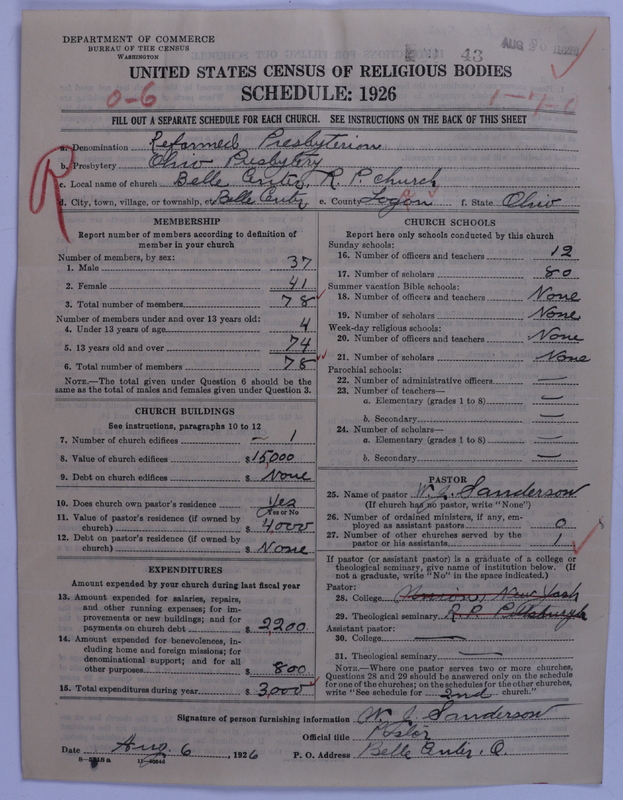 DEPARTMENT OF COMMERCE
BUREAU OF THE CENSUS
WASHINGTON
43
AUG 20
UNITED STATES CENSUS OF RELIGIOUS BODIES
SCHEDULE: 1926
0-6
FILL OUT A SEPARATE SCHEDULE FOR EACH CHURCH. SEE INSTRUCTIONS ON THE BACK OF THIS SHEET
R
a. Denomination Reformed Presbyterian
b. Presbytery Ohio Presbytery
c. Local name of church Belle Center, R. P. Church
d. City, town, village, or township, etc. Belle Center e. County Logan f. State Ohio
MEMBERSHIP
Report number of members according to definition of
member in your church
Number of members, by sex:
1. Male 37
2. Female 41
3. Total number of members 78
Number of members under and over 13 years old:
4. Under 13 years of age 4
5. 13 years old and over 74
6. Total number of members 78
NOTE.—The total given under Question 6 should be the
same as the total of males and females given under Question 3.
CHURCH BUILDINGS
See instructions, paragraphs 10 to 12
7. Number of church edifices — 1
8. Value of church edifices $ 15,000
9. Debt on church edifices $ None
10. Does church own pastor's residence Yes
Yes or No
11. Value of pastor's residence (if owned by
church) $ 4000
12. Debt on pastor's residence (if owned by
church) $ None
EXPENDITURES
Amount expended by your church during last fiscal year
13. Amount expended for salaries, repairs,
and other running expenses; for im-
provements or new buildings; and for
payments on church debt $ 2,200
14. Amount expended for benevolences, in-
cluding home and foreign missions; for
denominational support; and for all
other purposes $ 800
15. Total expenditures during year $ 3,000
CHURCH SCHOOLS
Report here only schools conducted by this church
Sunday schools:
16. Number of officers and teachers 12
17. Number of scholars 80
Summer vacation Bible schools:
18. Number of officers and teachers None
19. Number of scholars None
Week-day religious schools:
20. Number of officers and teachers None
21. Number of scholars None
Parochial schools:
22. Number of administrative officers —
23. Number of teachers—
a. Elementary (grades 1 to 8) —
b. Secondary —
24. Number of scholars—
a. Elementary (grades 1 to 8) —
b. Secondary —
PASTOR
25. Name of pastor W. J. Sanderson
(If church has no pastor, write "None")
26. Number of ordained ministers, if any, em-
ployed as assistant pastors 0
27. Number of other churches served by the
pastor or his assistants 1
If pastor (or assistant pastor) is a graduate of a college or
theological seminary, give name of institution below. (If
not a graduate, write "No" in the space indicated.)
Pastor:
28. College New
29. Theological seminary R. P. Pittsburgh
Assistant pastor:
30. College —
31. Theological seminary —
NOTE.—Where one pastor serves two or more churches,
Questions 28 and 29 should be answered only on the schedule
for one of the churches; on the schedules for the other churches,
write "See schedule for 2nd church."
Signature of person furnishing information W. J. Sanderson
Official title Pastor
Date Aug. 6, 1926 P. O. Address Belle Center, O.